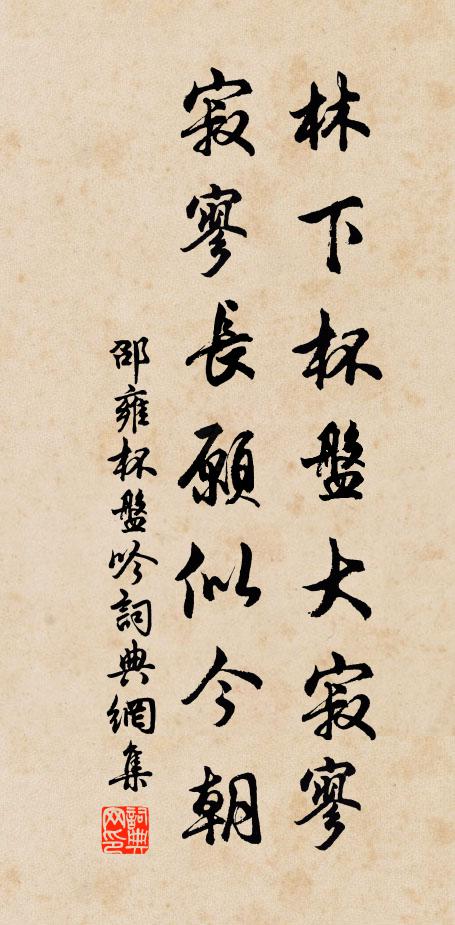 林下杯盤大寂寥
寂寥長願似今朝
邵雍杯盤吟詞典網集
詞典网印